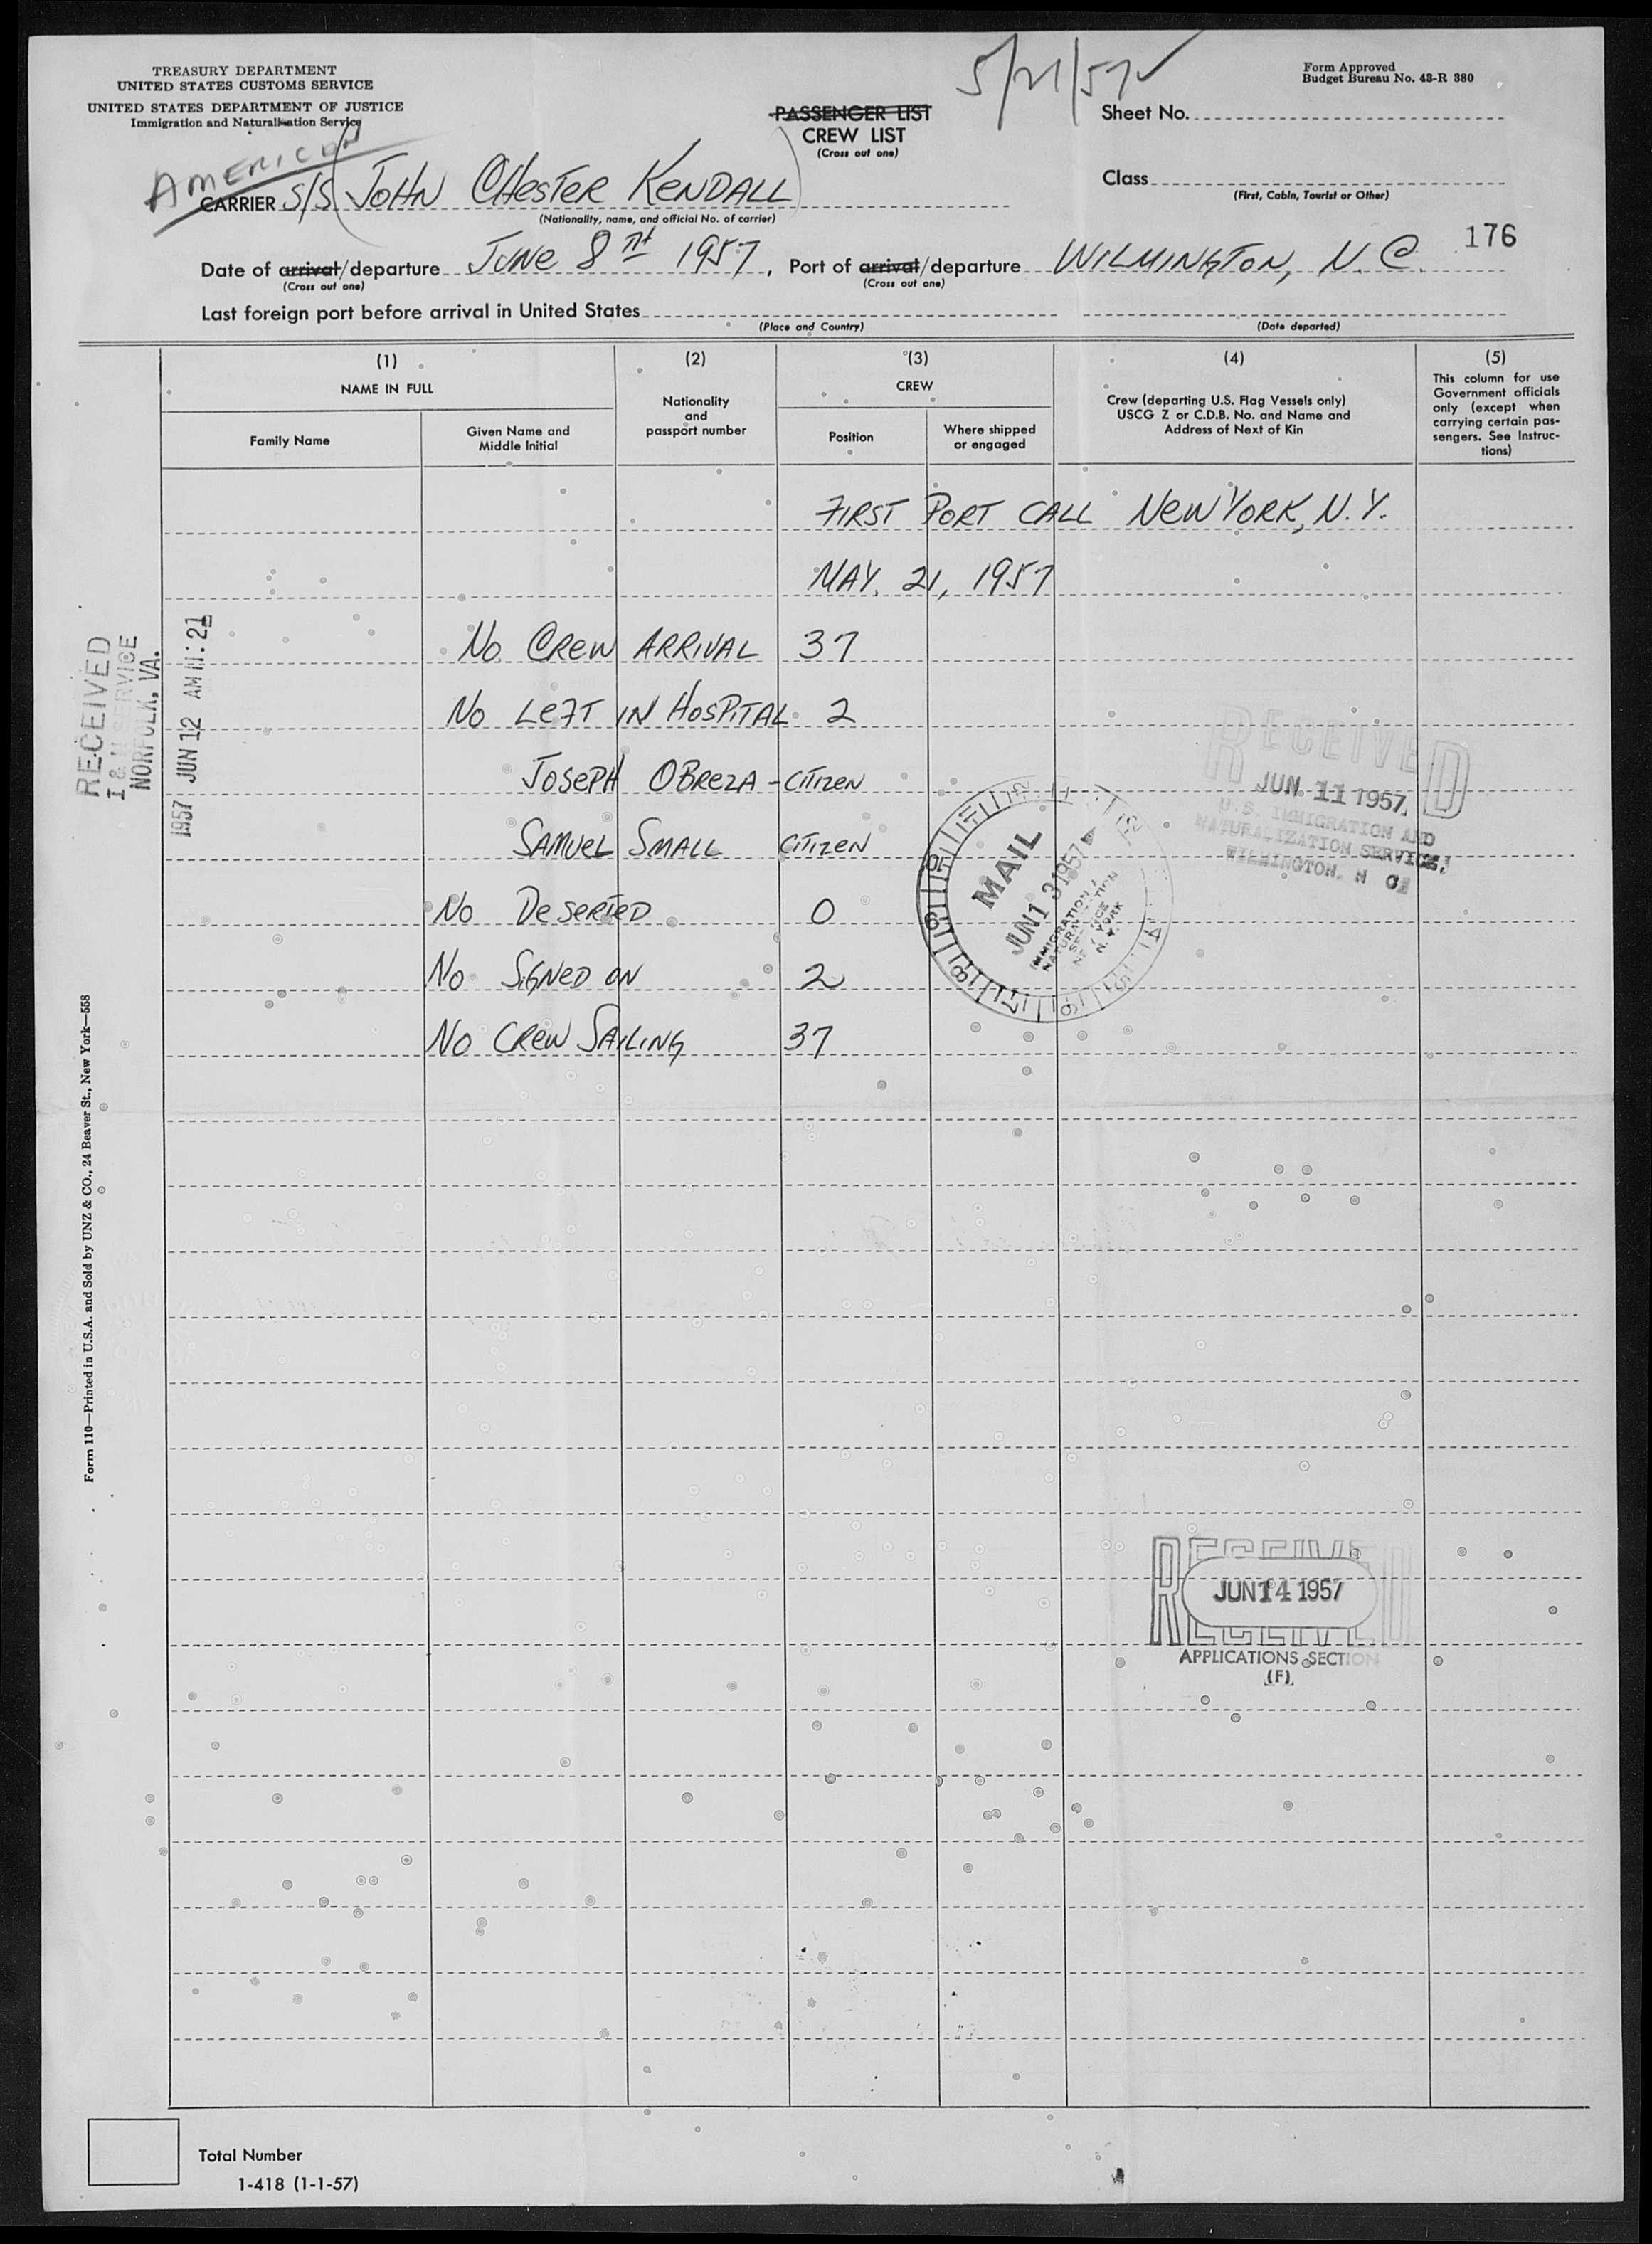 TREASURY DEPARTMENT
UNITED STATES CUSTOMS SERVICE
UNITED STATES DEPARTMENT OF JUSTICE
Immigration and Naturalization Service
5/21/57
Form Approved
Budget Bureau No. 43-R 380
PASSENGER LIST
CREW LIST
(Cross out one)
Sheet No.
Class
(First, Cabin, Tourist or Other)
AMERICAN
CARRIER S/S JOHN CHESTER KENDALL
(Nationality, name, and official No. of carrier)
176
Date of arrival/departure JUNE 8 1957, Port of arrival/departure WILMINGTON, N.C.
(Cross out one) (Cross out one)
Last foreign port before arrival in United States
(Place and Country) (Date departed)
(1) (2) (3) (4) (5)
NAME IN FULL
Family Name
Given Name and
Middle Initial
Nationality
and
passport number
CREW
Position
Where shipped
or engaged
Crew (departing U.S. Flag Vessels only)
USCG Z or C.D.B. No. and Name and
Address of Next of Kin
This column for use
Government officials
only (except when
carrying certain pas-
sengers. See Instruc-
tions)
FIRST PORT CALL NEW YORK, N.Y.
MAY. 21, 1957
No CREW ARRIVAL 37
No LEFT IN HOSPITAL 2
JOSEPH OBREZA - CITIZEN
SAMUEL SMALL CITIZEN
No DESERTED 0
No SIGNED ON 2
No CREW SAILING 37
RECEIVED
I & N SERVICE
NORFOLK, VA.
1957 JUN 12 AM 11:21
RECEIVED
JUN 11 1957
U.S. IMMIGRATION AND
NATURALIZATION SERVICE,
WILMINGTON, N C
MAIL
JUN 13 1957
IMMIGRATION &
NATURALIZATION
SERVICE
NEW YORK
N.Y.
RECEIVED
JUN 14 1957
APPLICATIONS SECTION
(F)
Form 110—Printed in U.S.A. and Sold by UNZ & CO., 24 Beaver St., New York—558
Total Number
1-418 (1-1-57)